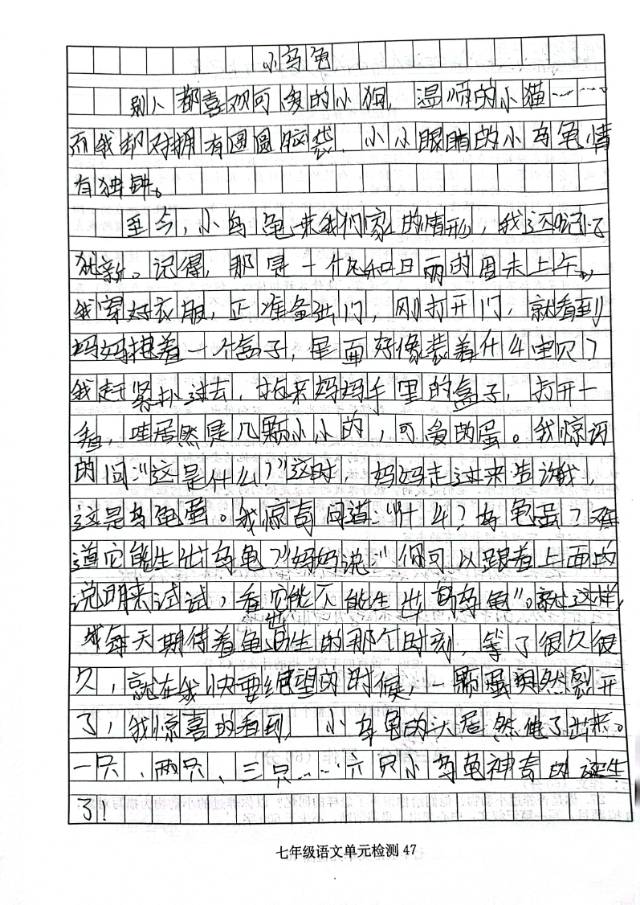 小乌龟
别人都喜欢可爱的小狗，温顺的小猫……
而我却对拥有圆圆脑袋、小小眼睛的小乌龟情
有独钟。
至今，小乌龟来我们家的情形，我还记忆
犹新。记得，那是一个风和日丽的周末上午，
我穿好衣服，正准备出门，刚打开门，就看到
妈妈抱着一个盒子，里面好像装着什么宝贝？
我赶紧扑过去，抬来妈妈手里的盒子，打开一
看，哇居然是几颗小小的，可爱的蛋。我惊讶
的问：“这是什么？”这时，妈妈走过来告诉我，
这是乌龟蛋。我惊奇问道：“什么？乌龟蛋？难
道它能生出乌龟？”妈妈说：“你可以跟着上面的
说明来试试，看它能不能生出乌龟”。就这样，
我每天期待着龟出生的那个时刻，等了很久很
久，就在我快要绝望的时候，一颗蛋突然裂开
了，我惊喜的看到，小乌龟的头居然伸了出来。
一只、两只、三只……六只小乌龟神奇的诞生
了！
七年级语文单元检测 47